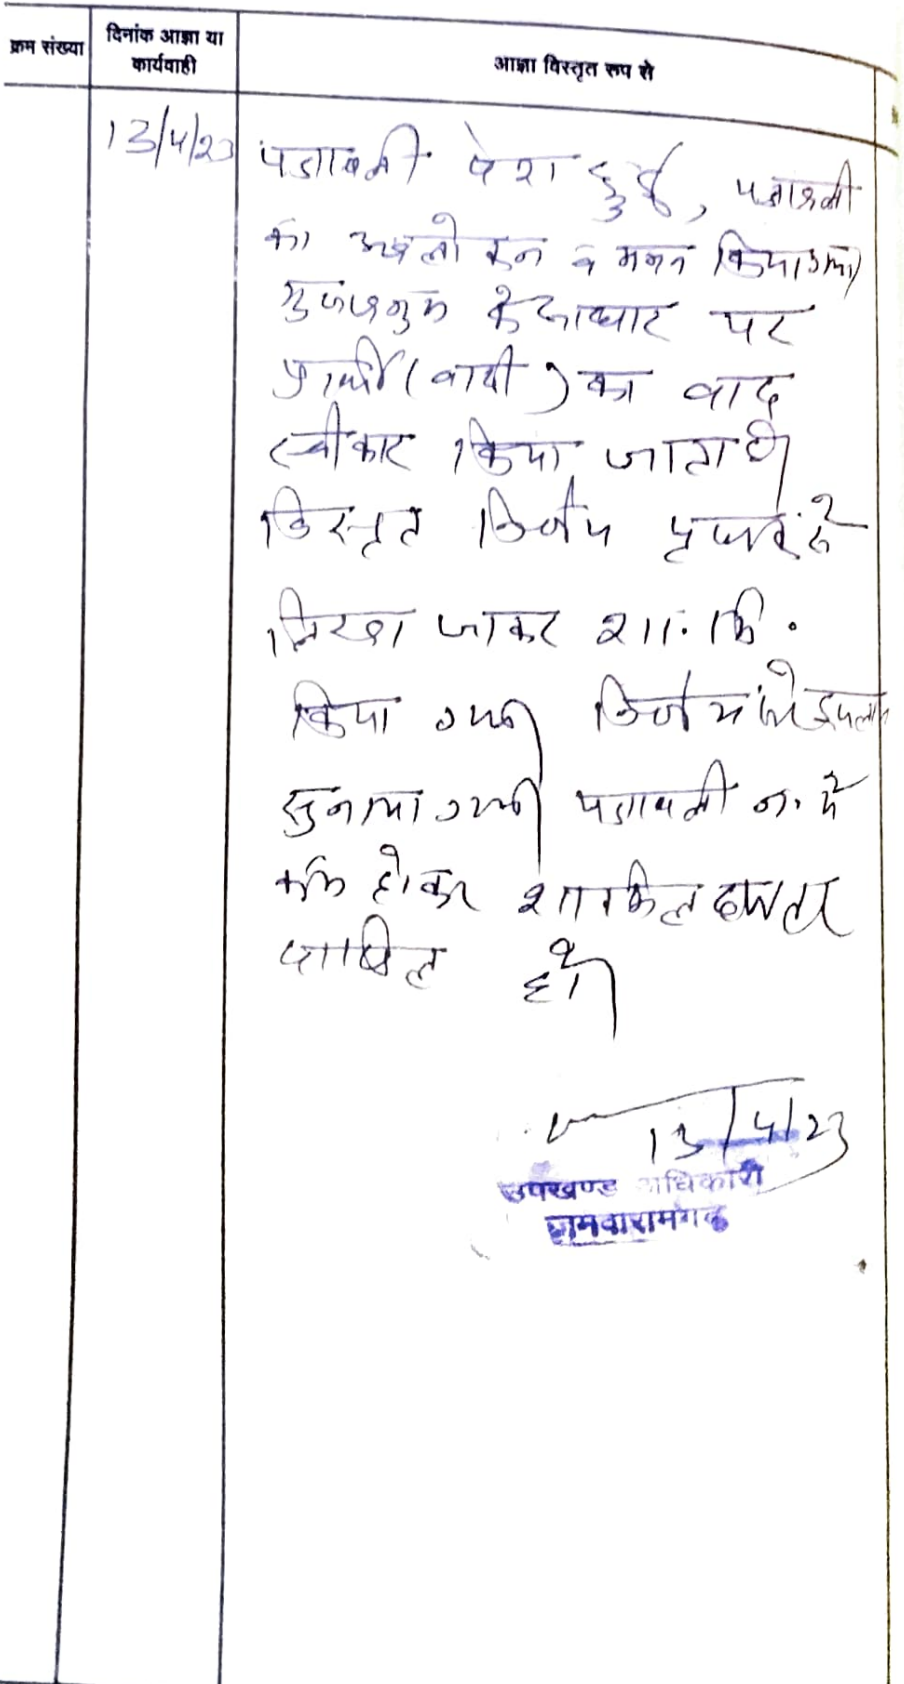 क्रम संख्या
दिनांक आज्ञा या
कार्यवाही
आज्ञा विस्तृत रूप से
13/4/23
पत्रावली पेश हुई, पत्रावली
का अवलोकन व मनन किया गया
गुणावगुण के आधार पर
प्रार्थी (वादी) का वाद
स्वीकार किया जाता है।
विस्तृत निर्णय पृथक से
लिखा जाकर शा. मि.
किया गया। निर्णय खुले इजलास
सुनाया गया। पत्रावली न. से
कम होकर दफ्तर
दाखिल हो।
13/4/23
उपखण्ड अधिकारी
जमवारामगढ